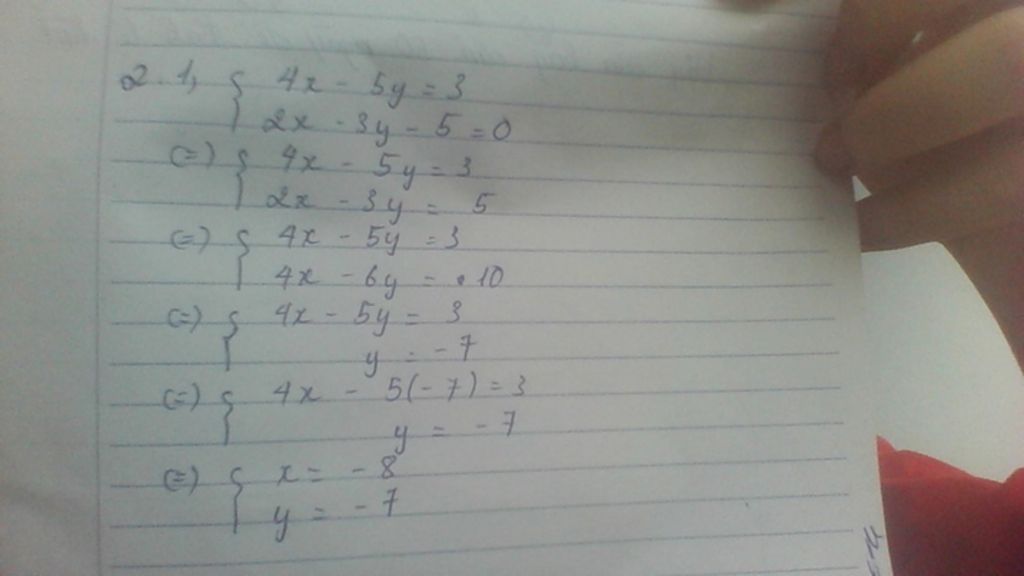 2.1, { 4x - 5y = 3
2x - 3y - 5 = 0
(=) { 4x - 5y = 3
2x - 3y = 5
(=) { 4x - 5y = 3
4x - 6y = 10
(=) { 4x - 5y = 3
y = -7
(=) { 4x - 5(-7) = 3
y = -7
(=) { x = -8
y = -7